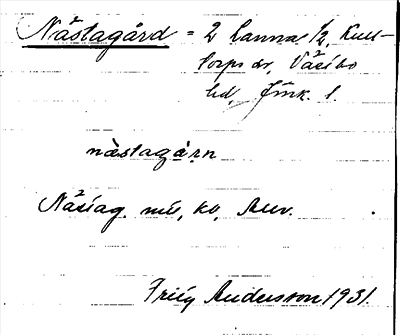 Nästagård = 2 Canna 1/2, Kull-
torps sr, Västbo
hd, Jönk. l.
nàstagár̥n
Nästag. mu, ko, Auv.
Friig Andersson 1931.